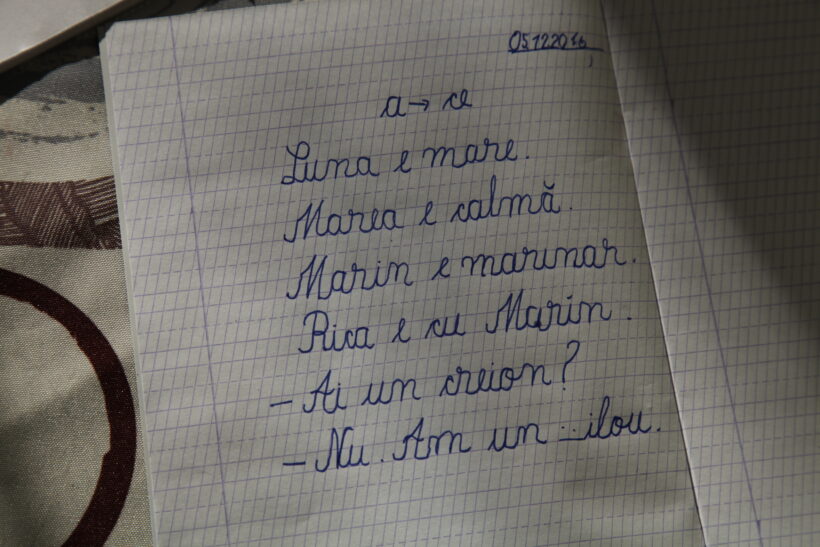 05122016
a → ce
Luna e mare.
Marea e calmă.
Marin e marinar.
Rica e cu Marin.
- Ai un creion?
- Nu. Am un